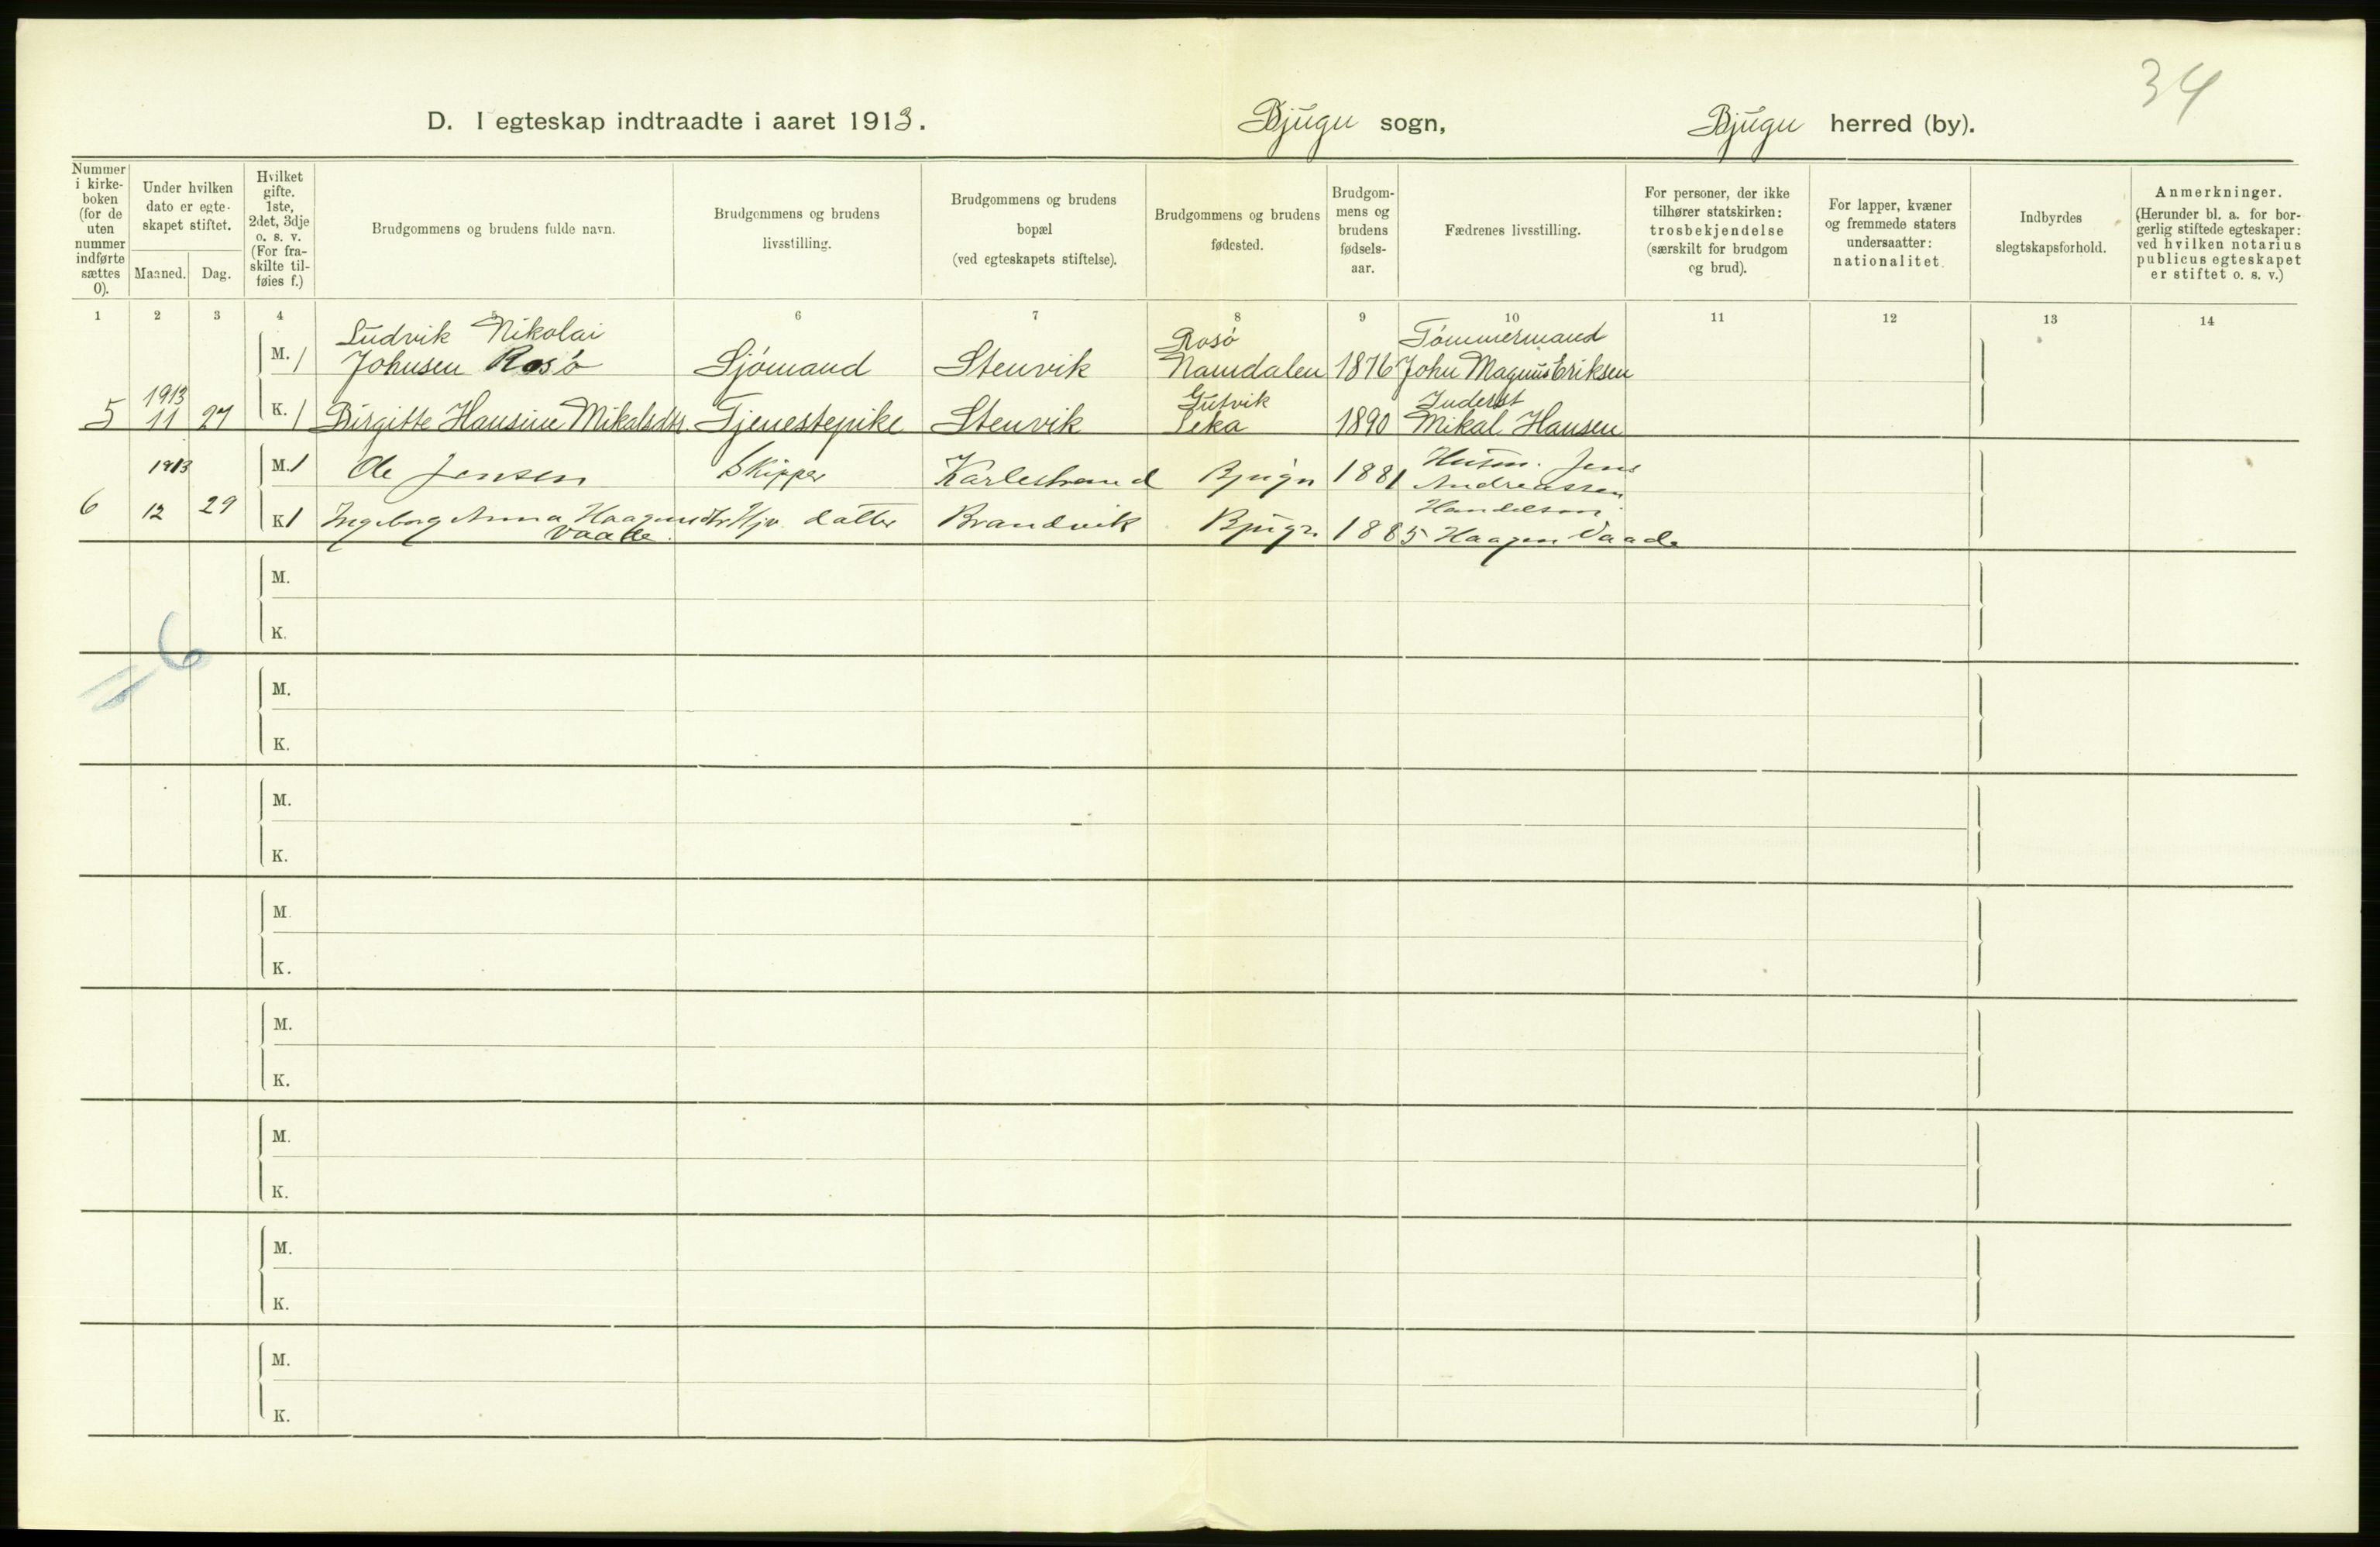 34
D. I egteskap indtraadte i aaret 1913. Bjugn sogn, Bjugn herred (by).
Nummer i kirke- boken (for de uten nummer indførte sættes 0).
Under hvilken dato er egte- skapet stiftet.
Maaned. Dag.
Hvilket gifte. 1ste, 2det, 3dje o. s. v. (For fra- skilte til- føies f.)
Brudgommens og brudens fulde navn.
Brudgommens og brudens livsstilling.
Brudgommens og brudens bopæl (ved egteskapets stiftelse).
Brudgommens og brudens fødested.
Brudgom- mens og brudens fødsels- aar.
Fædrenes livsstilling.
For personer, der ikke tilhører statskirken: trosbekjendelse (særskilt for brudgom og brud).
For lapper, kvæner og fremmede staters undersaatter: nationalitet.
Indbyrdes slegtskapsforhold.
Anmerkninger. (Herunder bl. a. for bor- gerlig stiftede egteskaper: ved hvilken notarius publicus egteskapet er stiftet o. s. v.)
1 2 3 4 5 6 7 8 9 10 11 12 13 14
Ludvik Nikolai Rosö Tömmermand
M. 1 Johnsen Rosö Sjömand Stenvik Namdalen 1876 John Magnus Eriksen
1913 Gutvik Inderst
5 11 27 K. 1 Birgitte Hansine Mikalsdtr. Tjenestepike Stenvik Leka 1890 Mikal Hansen
1913 M. 1 Ole Jensen Skipper Karlestrand Bjugn 1881 Husm. Jens
Andreassen
Handelsm.
6 12 29 K 1 Ingeborg Anna Haagensdtr Hjv. datter Brandvik Bjugn 1885 Haagen Vaade
Vaade.
M.
K.
= 6
M.
K.
M.
K.
M.
K.
M.
K.
M.
K.
M.
K.
M.
K.